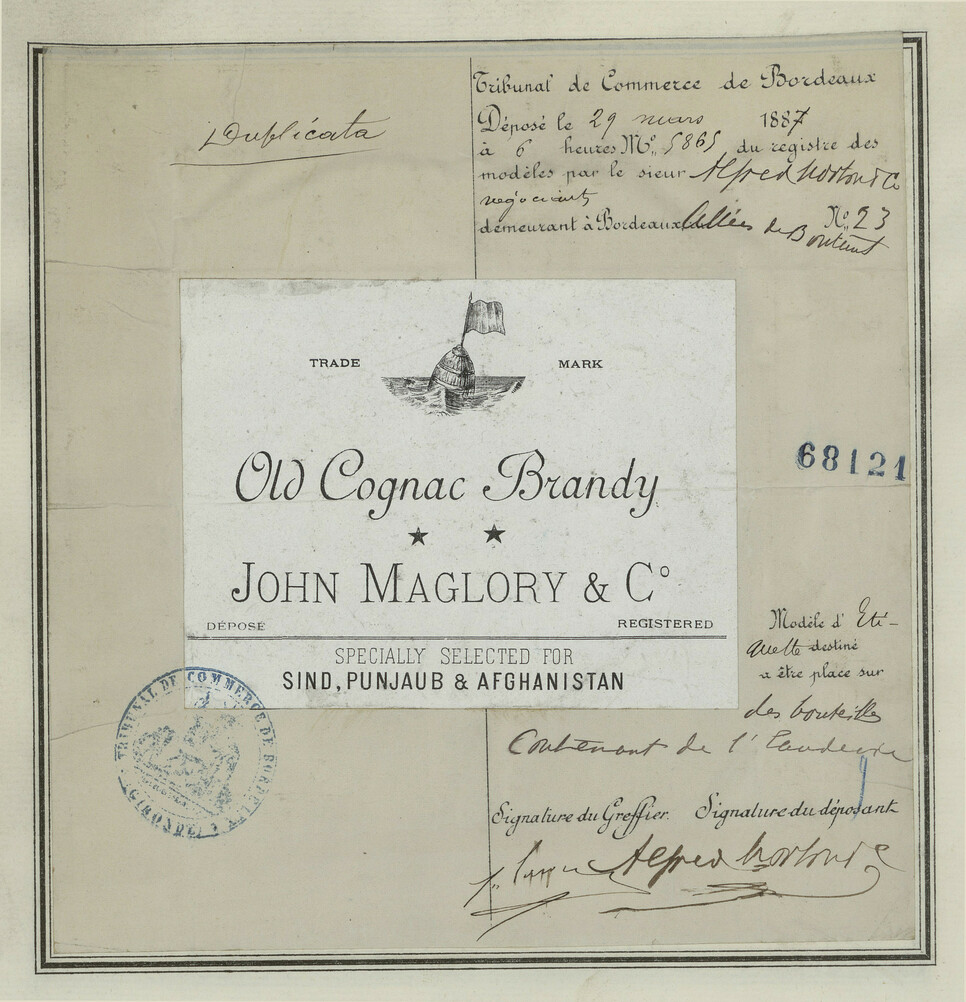 Duplicata
Tribunal de Commerce de Bordeaux
Déposé le 29 mars 1887
à 6 heures Nº 5865 du registre des
modèles par le sieur Alfred Morton & Co
négociants
demeurant à Bordeaux Allées de Boutaut Nº 23
TRADE MARK
Old Cognac Brandy
★ ★
JOHN MAGLORY & Cº
DÉPOSÉ REGISTERED
SPECIALLY SELECTED FOR
SIND, PUNJAUB & AFGHANISTAN
68121
Modèle d' Eti-
quette destiné
a être place sur
des bouteilles
Contenant de l'Eaudevie
TRIBUNAL DE COMMERCE DE BORDEAUX
(GIRONDE)
Signature du Greffier. Signature du déposant
Alfred Morton & C